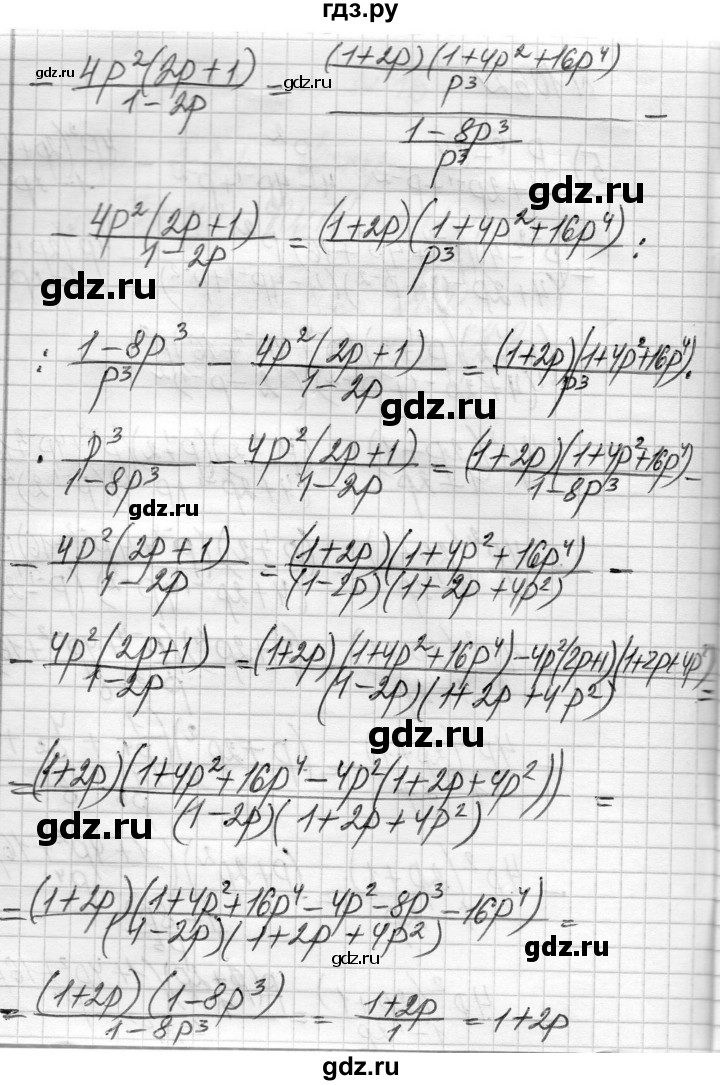 гдз.ру
- 4p²(2p+1)/(1-2p) = ((1+2p)(1+4p²+16p⁴)/p³)/((1-8p³)/p³) -
gdz.ru
gdz.ru
- 4p²(2p+1)/(1-2p) = (1+2p)(1+4p²+16p⁴)/p³ :
gdz.ru
gdz.ru
: (1-8p³)/p³ - 4p²(2p+1)/(1-2p) = (1+2p)(1+4p²+16p⁴)/p³ ·
gdz.ru
· p³/(1-8p³) - 4p²(2p+1)/(1-2p) = (1+2p)(1+4p²+16p⁴)/(1-8p³) -
gdz.ru
gdz.ru
- 4p²(2p+1)/(1-2p) = (1+2p)(1+4p²+16p⁴)/((1-2p)(1+2p+4p²)) -
- 4p²(2p+1)/(1-2p) = ((1+2p)(1+4p²+16p⁴)-4p²(2p+1)(1+2p+4p²))/((1-2p)(1+2p+4p²)) =
gdz.ru
= (1+2p)(1+4p²+16p⁴-4p²(1+2p+4p²))/((1-2p)(1+2p+4p²)) =
gdz.ru
= (1+2p)(1+4p²+16p⁴-4p²-8p³-16p⁴)/((1-2p)(1+2p+4p²)) =
gdz.ru
gdz.ru
= (1+2p)(1-8p³)/(1-8p³) = (1+2p)/1 = 1+2p
gdz.ru